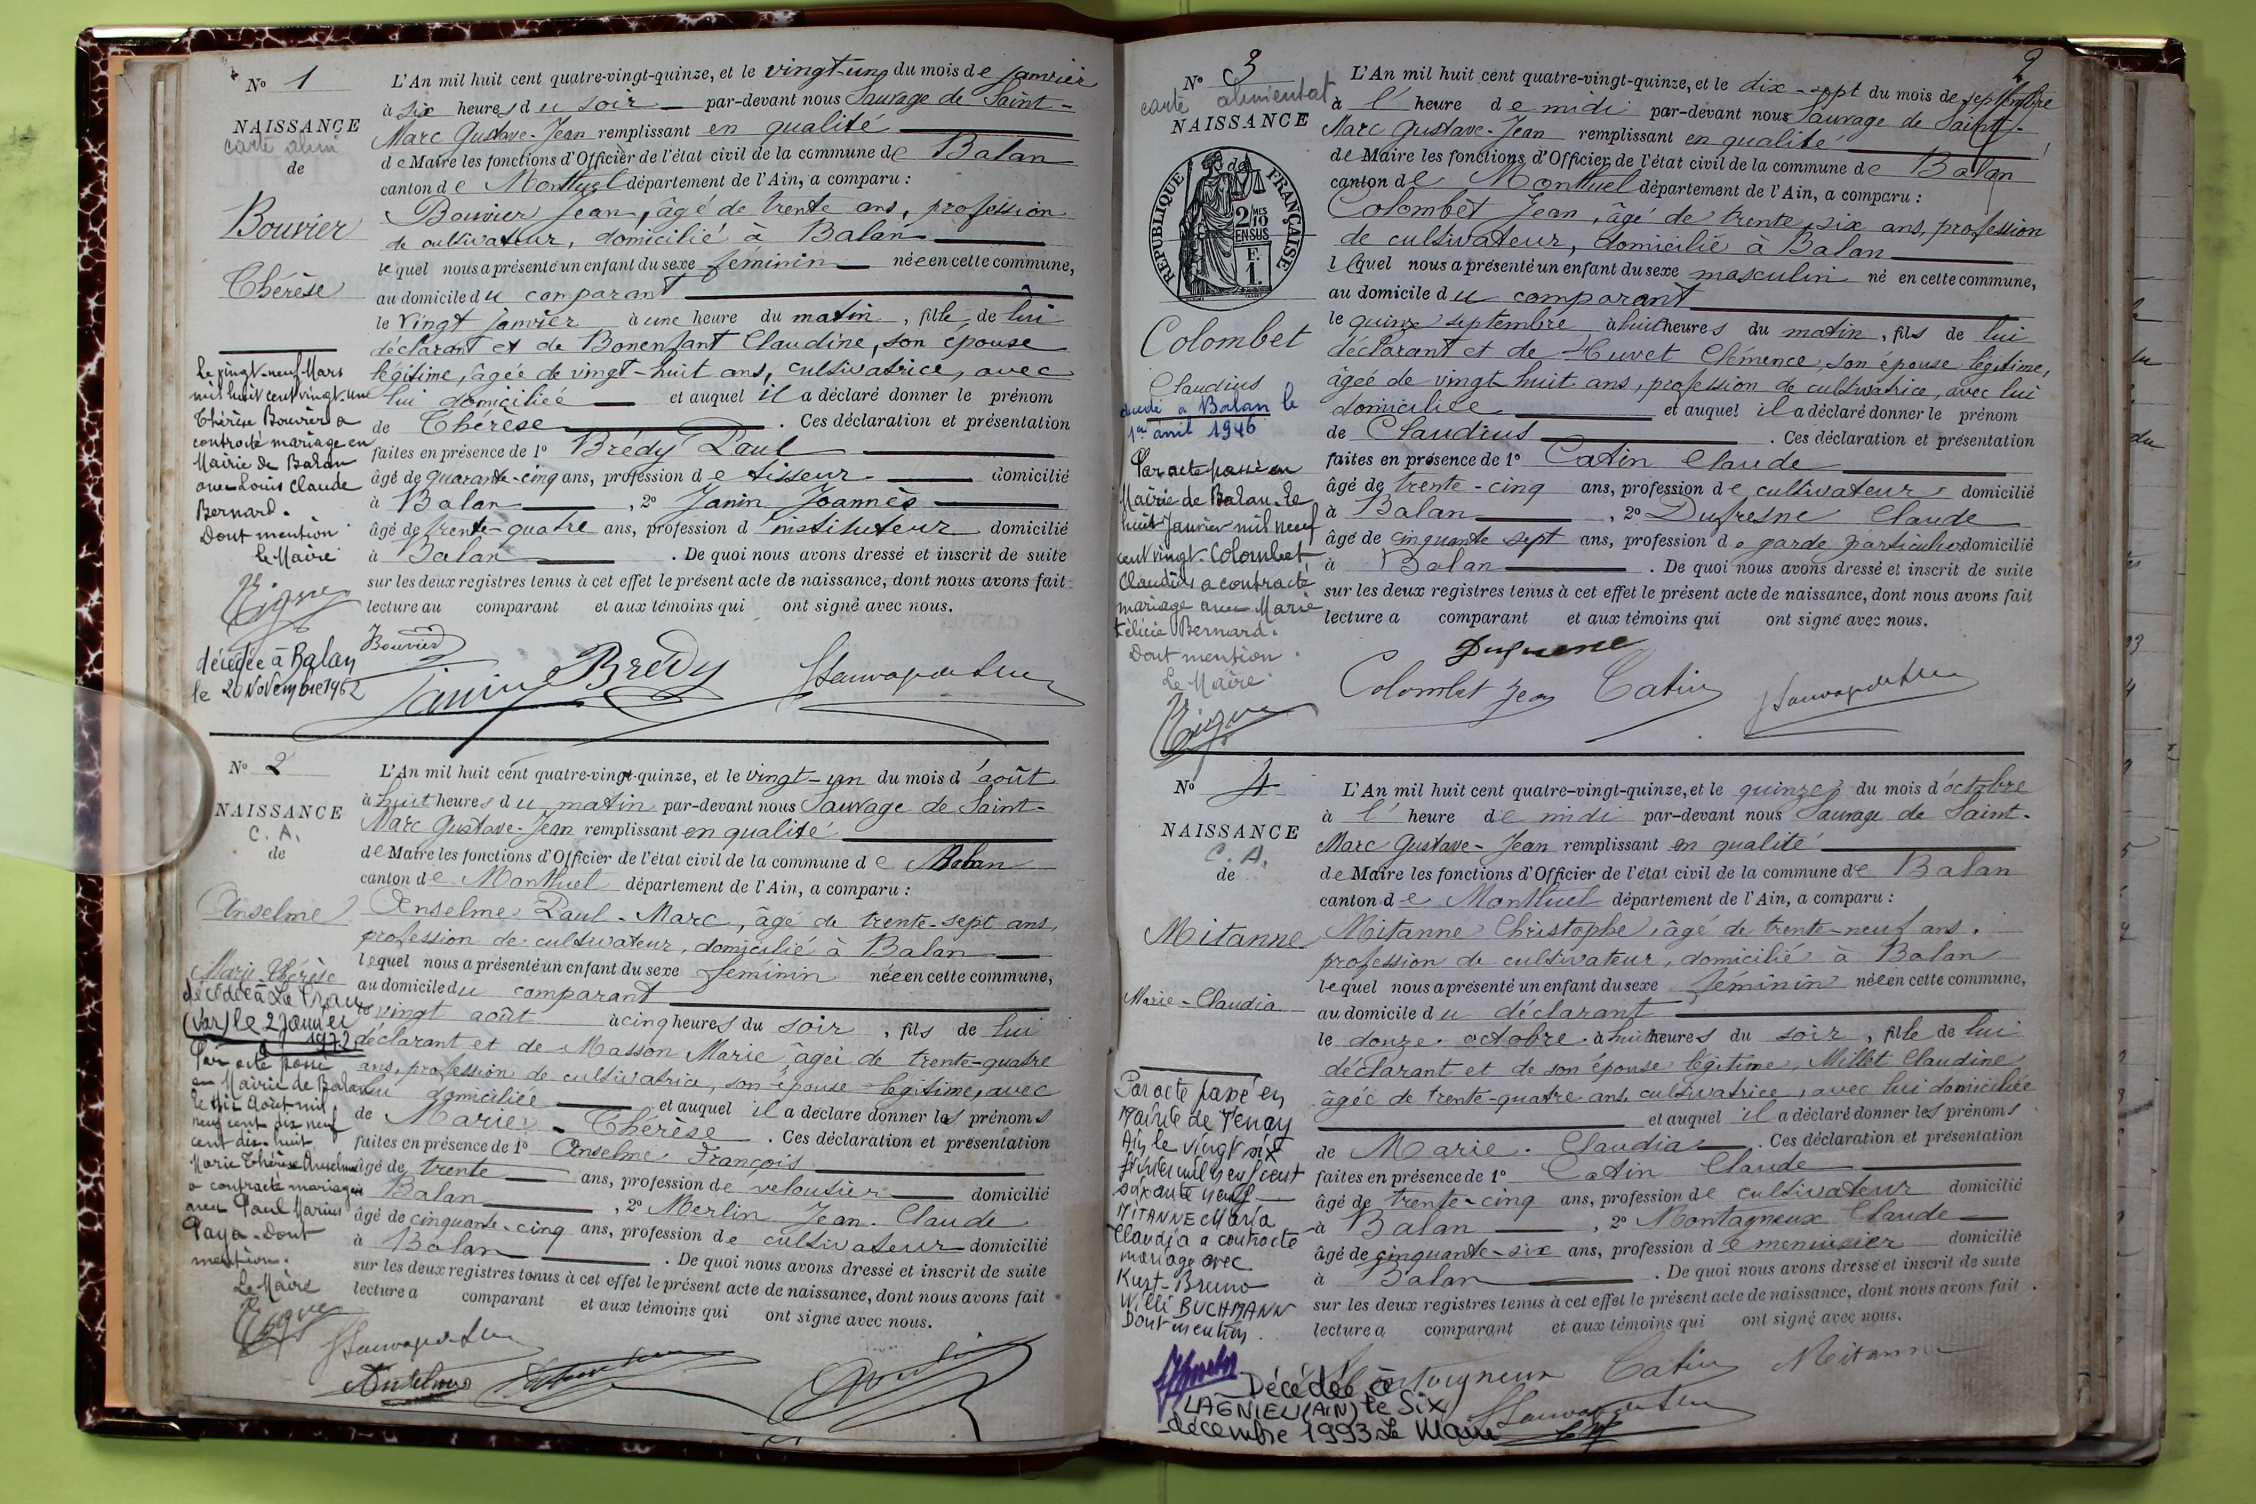 N° 1
NAISSANCE
carte alim
de
Bouvier
Thérèse
Le vingt-neuf Mars
mil huit cent vingt-une
Thérèse Bouvier a
contracté mariage en
Mairie de Balan
avec Louis Claude
Bernard.
Dont mention
Le Maire
décédée à Balan
le 20 Novembre 1962
L'An mil huit cent quatre-vingt-quinze, et le vingt-un du mois de janvier
à six heures du soir par-devant nous Sauvage de Saint-
Marc Gustave-Jean remplissant en qualité
de Maire les fonctions d'Officier de l'état civil de la commune de Balan
canton de Montluel département de l'Ain, a comparu :
Bouvier Jean, âgé de trente ans, profession
de cultivateur, domicilié à Balan
lequel nous a présenté un enfant du sexe feminin née en cette commune,
au domicile du comparant
le vingt janvier à une heure du matin, fille de lui
déclarant et de Bonenfant Claudine, son épouse
légitime, âgée de vingt-huit ans, cultivatrice, avec
lui domiciliée et auquel il a déclaré donner le prénom
de Thérèse . Ces déclaration et présentation
faites en présence de 1° Brédy Paul
âgé de quarante-cinq ans, profession de tisseur domicilié
à Balan , 2° Janin Joannès
âgé de trente-quatre ans, profession d'instituteur domicilié
à Balan . De quoi nous avons dressé et inscrit de suite
sur les deux registres tenus à cet effet le présent acte de naissance, dont nous avons fait
lecture au comparant et aux témoins qui ont signé avec nous.
Bouvier
Janin Brédy
N° 2
NAISSANCE
C. A.
de
Anselme
Marie Thérèse
décédée à La Crau
(Var) le 2 Janvier
1972
Par acte passé
en Mairie de Balan
le dix Août mil
neuf cent dix neuf
cent dix-huit
Marie Thérèse Anselme
a contracté mariage
avec Paul Marius
Paya. Dont
mention.
Le Maire
L'An mil huit cent quatre-vingt-quinze, et le vingt-un du mois d'août
à huit heures du matin par-devant nous Sauvage de Saint-
Marc Gustave-Jean remplissant en qualité
de Maire les fonctions d'Officier de l'état civil de la commune de Balan
canton de Montluel département de l'Ain, a comparu :
Anselme Paul-Marc, âgé de trente-sept ans,
profession de cultivateur, domicilié à Balan
lequel nous a présenté un enfant du sexe feminin née en cette commune,
au domicile du comparant
le vingt août à cinq heures du soir, fils de lui
déclarant et de Masson Marie âgée de trente-quatre
ans, profession de cultivatrice, son épouse légitime, avec
lui domiciliée et auquel il a déclaré donner les prénoms
de Marie-Thérèse . Ces déclaration et présentation
faites en présence de 1° Anselme François
âgé de trente ans, profession de veloutier domicilié
à Balan , 2° Merlin Jean-Claude
âgé de cinquante-cinq ans, profession de cultivateur domicilié
à Balan . De quoi nous avons dressé et inscrit de suite
sur les deux registres tenus à cet effet le présent acte de naissance, dont nous avons fait
lecture a comparant et aux témoins qui ont signé avec nous.
Anselme
2
N° 3
carte alimentat
NAISSANCE
de
RÉPUBLIQUE FRANÇAISE
2 MES 10
EN SUS
F.
1.
Colombet
Claudius
décédé à Balan le
1er avril 1946
Par acte passé en
Mairie de Balan le
huit Janvier mil neuf
cent vingt. Colombet
Claudius a contracté
mariage avec Marie
Félicie Bernard.
Dont mention.
Le Maire
L'An mil huit cent quatre-vingt-quinze, et le dix-sept du mois de septembre
à l' heure de midi par-devant nous Sauvage de Saint-
Marc Gustave-Jean remplissant en qualité
de Maire les fonctions d'Officier de l'état civil de la commune de Balan
canton de Montluel département de l'Ain, a comparu :
Colombet Jean, âgé de trente six ans, profession
de cultivateur, domicilié à Balan
lequel nous a présenté un enfant du sexe masculin né en cette commune,
au domicile du comparant
le quinze septembre à huit heures du matin, fils de lui
déclarant et de Huvet Clémence, son épouse légitime,
âgée de vingt-huit ans, profession de cultivatrice, avec lui
domiciliée et auquel il a déclaré donner le prénom
de Claudius . Ces déclaration et présentation
faites en présence de 1° Catin Claude
âgé de trente-cinq ans, profession de cultivateur domicilié
à Balan , 2° Dufresne Claude
âgé de cinquante sept ans, profession de garde particulier domicilié
à Balan . De quoi nous avons dressé et inscrit de suite
sur les deux registres tenus à cet effet le présent acte de naissance, dont nous avons fait
lecture a comparant et aux témoins qui ont signé avec nous.
Dufresne
Colombet Jean Catin
N° 4
NAISSANCE
C. A.
de
Mitanne
Marie-Claudia
Par acte passé en
Mairie de Tenay
Ain le vingt six
février mil neuf cent
soixante neuf
MITANNE Maria
Claudia a contracté
mariage avec
Kurt-Bruno
Willi BUCHMANN
Dont mention.
Décédée à
LAGNIEU (AIN) le Six
décembre 1993 Le Maire
L'An mil huit cent quatre-vingt-quinze, et le quinze du mois d'octobre
à l' heure de midi par-devant nous Sauvage de Saint-
Marc Gustave-Jean remplissant en qualité
de Maire les fonctions d'Officier de l'état civil de la commune de Balan
canton de Montluel département de l'Ain, a comparu :
Mitanne Christophe, âgé de trente-neuf ans,
profession de cultivateur, domicilié à Balan
lequel nous a présenté un enfant du sexe féminin née en cette commune,
au domicile du déclarant
le douze octobre à huit heures du soir, fille de lui
déclarant et de son épouse légitime, Millet Claudine
âgée de trente-quatre ans, cultivatrice, avec lui domiciliée
et auquel il a déclaré donner les prénoms
de Marie-Claudia . Ces déclaration et présentation
faites en présence de 1° Catin Claude
âgé de trente-cinq ans, profession de cultivateur domicilié
à Balan , 2° Montagneux Claude
âgé de cinquante-six ans, profession de menuisier domicilié
à Balan . De quoi nous avons dressé et inscrit de suite
sur les deux registres tenus à cet effet le présent acte de naissance, dont nous avons fait
lecture a comparant et aux témoins qui ont signé avec nous.
Montagneux Catin Mitanne